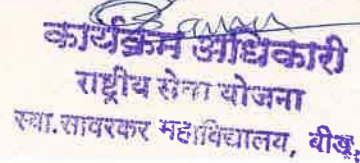 कार्यक्रम अधिकारी
राष्ट्रीय सेवा योजना
स्वा.सावरकर महाविद्यालय, बीड.